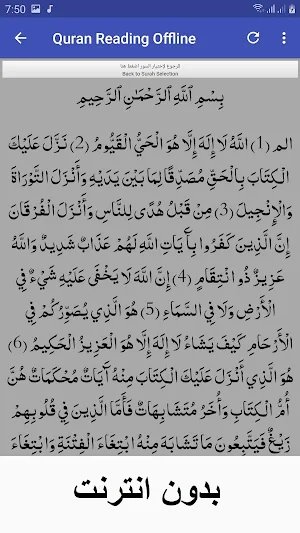 7:50
Quran Reading Offline
للرجوع لاختيار السور اضغط هنا
Back to Surah Selection
بِسْمِ اللَّهِ الرَّحْمَٰنِ الرَّحِيمِ
الم (1) اللَّهُ لَا إِلَهَ إِلَّا هُوَ الْحَيُّ الْقَيُّومُ (2) نَزَّلَ عَلَيْكَ
الْكِتَابَ بِالْحَقِّ مُصَدِّقًا لِمَا بَيْنَ يَدَيْهِ وَأَنْزَلَ التَّوْرَاةَ
وَالْإِنْجِيلَ (3) مِنْ قَبْلُ هُدًى لِلنَّاسِ وَأَنْزَلَ الْفُرْقَانَ
إِنَّ الَّذِينَ كَفَرُوا بِآيَاتِ اللَّهِ لَهُمْ عَذَابٌ شَدِيدٌ وَاللَّهُ
عَزِيزٌ ذُو انْتِقَامٍ (4) إِنَّ اللَّهَ لَا يَخْفَى عَلَيْهِ شَيْءٌ فِي
الْأَرْضِ وَلَا فِي السَّمَاءِ (5) هُوَ الَّذِي يُصَوِّرُكُمْ فِي
الْأَرْحَامِ كَيْفَ يَشَاءُ لَا إِلَهَ إِلَّا هُوَ الْعَزِيزُ الْحَكِيمُ (6)
هُوَ الَّذِي أَنْزَلَ عَلَيْكَ الْكِتَابَ مِنْهُ آيَاتٌ مُحْكَمَاتٌ هُنَّ
أُمُّ الْكِتَابِ وَأُخَرُ مُتَشَابِهَاتٌ فَأَمَّا الَّذِينَ فِي قُلُوبِهِمْ
زَيْغٌ فَيَتَّبِعُونَ مَا تَشَابَهَ مِنْهُ ابْتِغَاءَ الْفِتْنَةِ وَابْتِغَاءَ
بدون انترنت